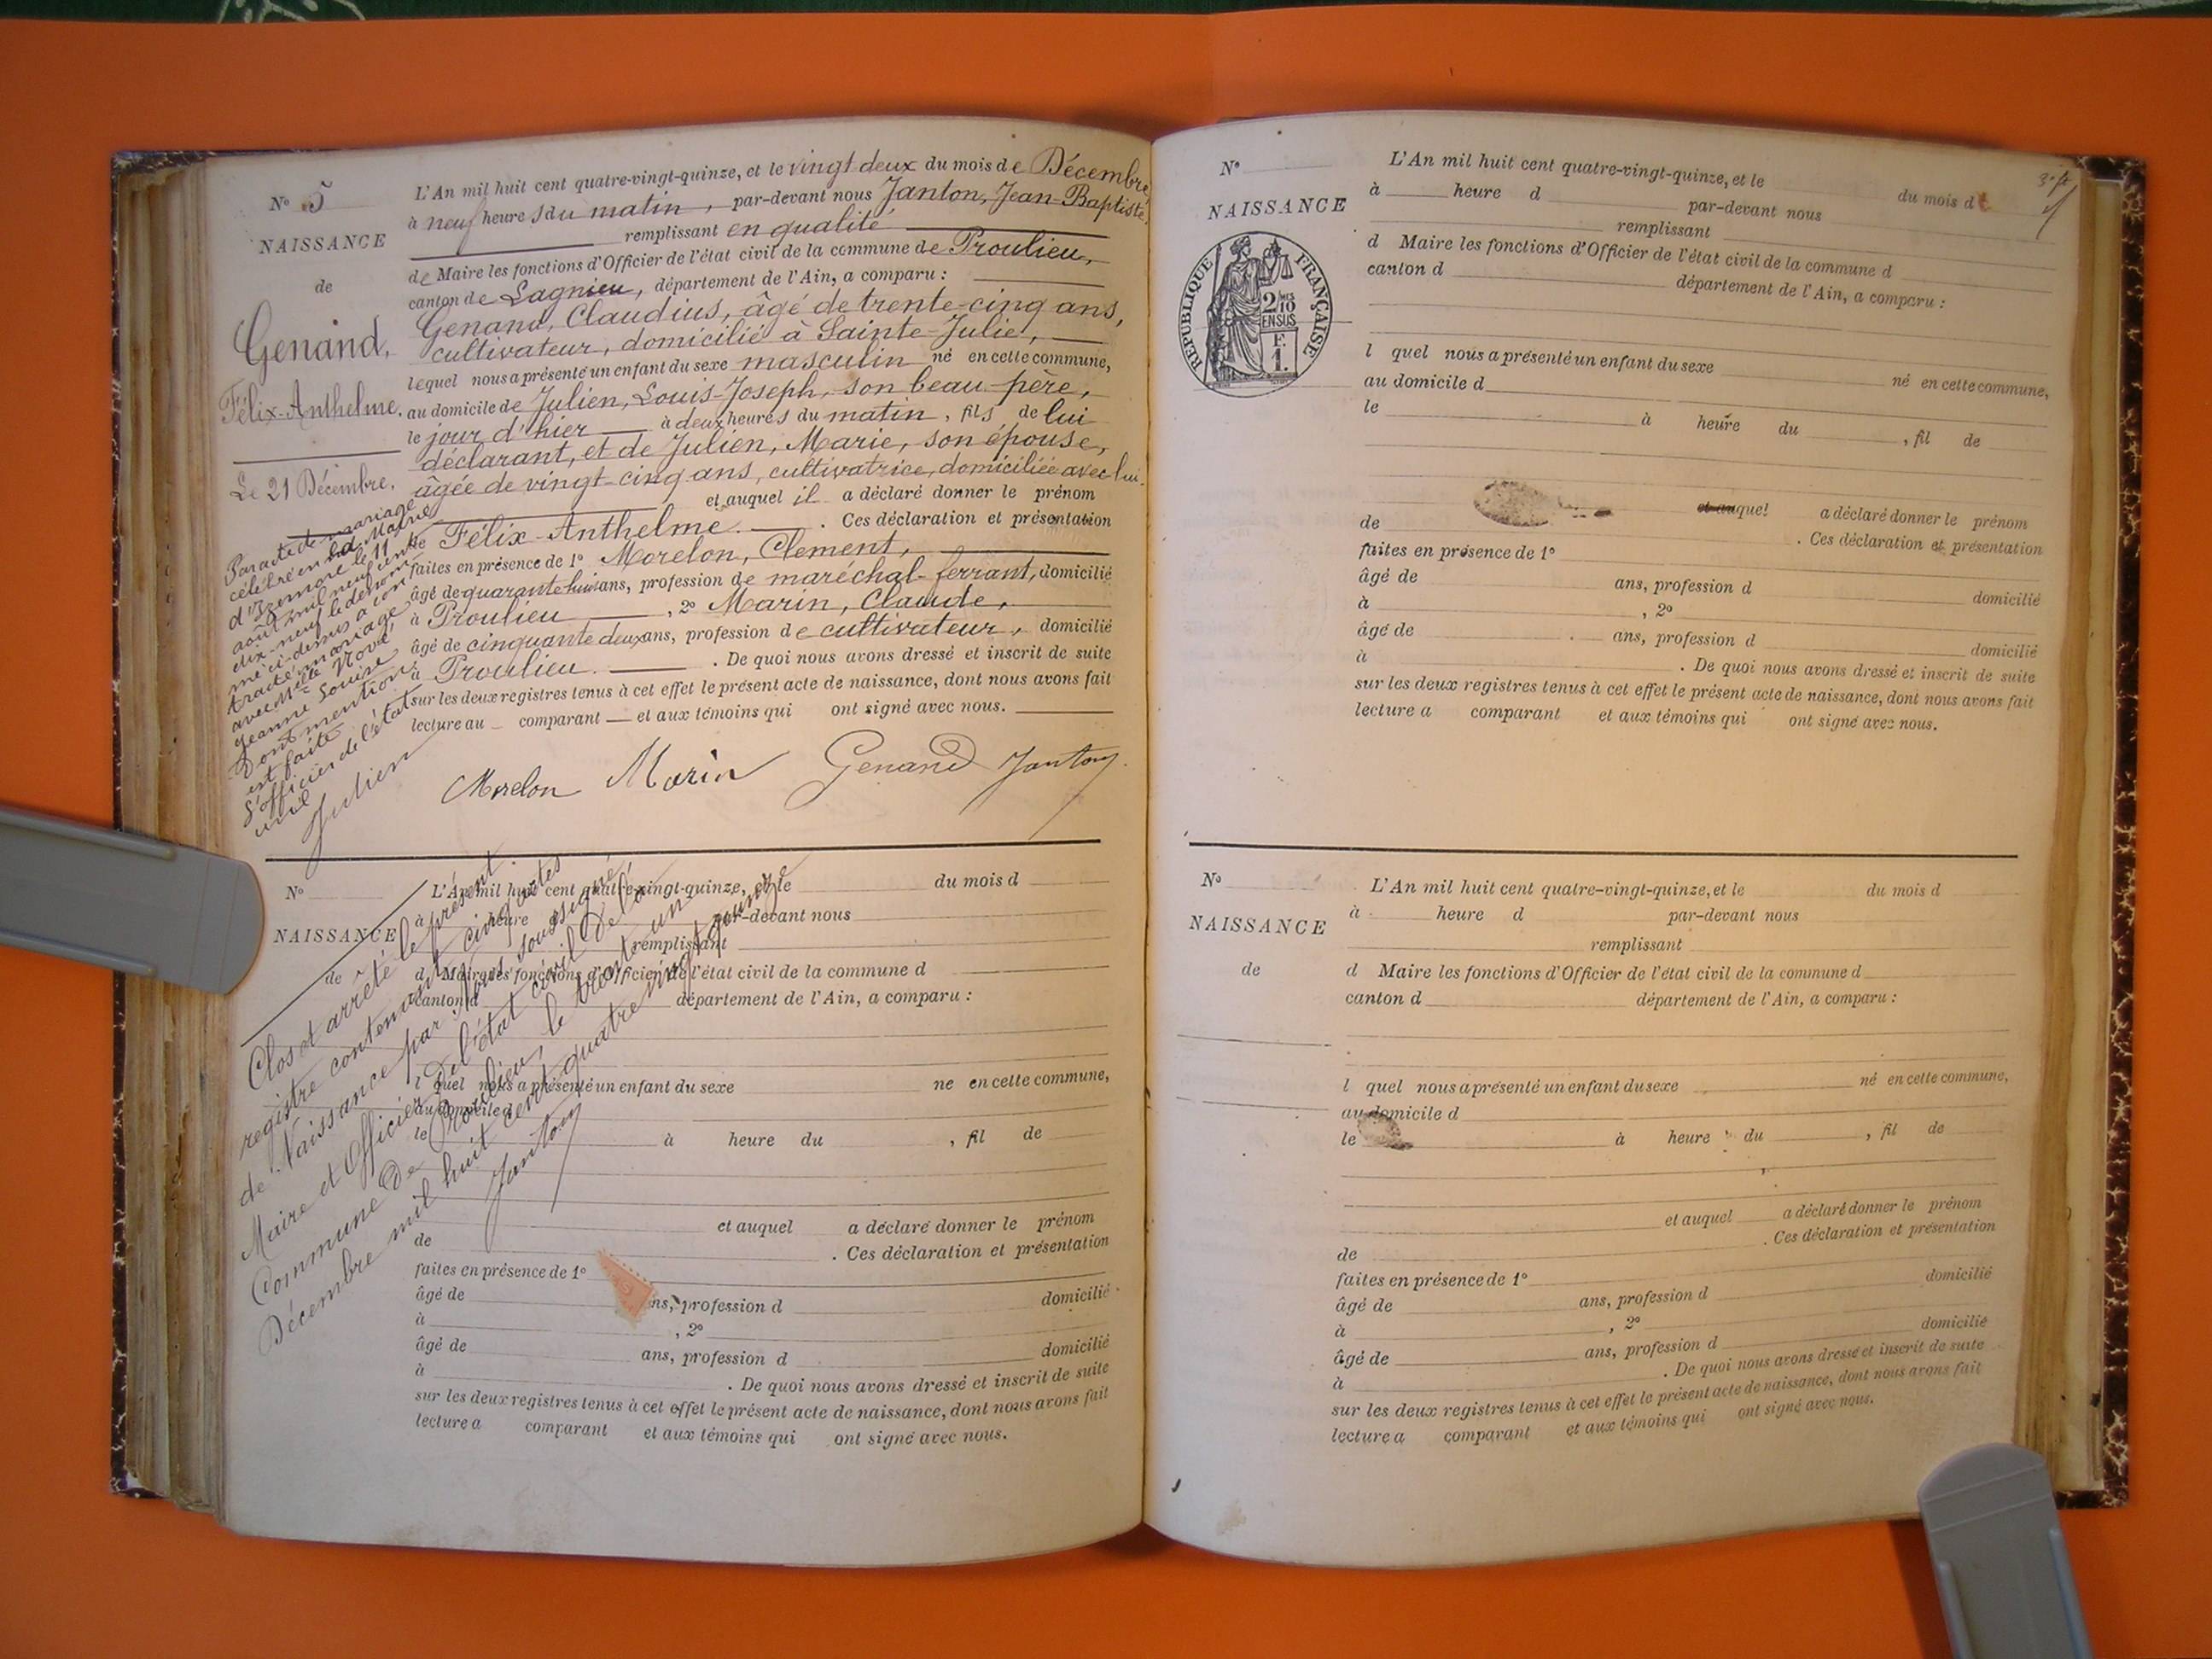 N° 5
NAISSANCE
de
Genand,
Félix-Anthelme.
Le 21 Décembre.
L'An mil huit cent quatre-vingt-quinze, et le vingt deux du mois de Décembre
à neuf heures du matin, par-devant nous Janton, Jean-Baptiste,
remplissant en qualité
de Maire les fonctions d'Officier de l'état civil de la commune de Proulieu,
canton de Lagnieu, département de l'Ain, a comparu :
Genand, Claudius, âgé de trente-cinq ans,
cultivateur, domicilié à Sainte-Julie,
lequel nous a présenté un enfant du sexe masculin né en cette commune,
au domicile de Julien, Louis-Joseph, son beau-père,
le jour d'hier à deux heures du matin, fils de lui
déclarant, et de Julien, Marie, son épouse,
âgée de vingt-cinq ans, cultivatrice, domiciliée avec lui.
et auquel il a déclaré donner le prénom
de Félix-Anthelme. Ces déclaration et présentation
faites en présence de 1° Morelon, Clement,
âgé de quarante-huit ans, profession de maréchal-ferrant, domicilié
à Proulieu, 2° Marin, Claude,
âgé de cinquante deux ans, profession de cultivateur, domicilié
à Proulieu. De quoi nous avons dressé et inscrit de suite
sur les deux registres tenus à cet effet le présent acte de naissance, dont nous avons fait
lecture au comparant et aux témoins qui ont signé avec nous.
Par acte de mariage
célébré en la Mairie
le 11
août mil neuf cent
dix-neuf le dénom
mé ci-dessus a con
tracté mariage
avec Melle
Jeanne Louise
Dont mention
est faite
L'officier de l'état
civil
Julien
Morelon Marin Genand Janton
N°
NAISSANCE
de
L'An mil huit cent quatre-vingt-quinze, et le du mois d
à heure par-devant nous
remplissant
d Maire les fonctions d'Officier de l'état civil de la commune d
canton d département de l'Ain, a comparu :
l quel nous a présenté un enfant du sexe né en cette commune,
au domicile d
le à heure du , fil de
et auquel a déclaré donner le prénom
de . Ces déclaration et présentation
faites en présence de 1°
âgé de ans, profession d domicilié
à , 2°
âgé de ans, profession d domicilié
à . De quoi nous avons dressé et inscrit de suite
sur les deux registres tenus à cet effet le présent acte de naissance, dont nous avons fait
lecture a comparant et aux témoins qui ont signé avec nous.
Clos et arrêté le présent
registre contenant cinq actes
de Naissance par Nous soussigné
Maire et Officier de l'état civil de la
Commune de Proulieu, le trente un
Décembre mil huit cent quatre vingt quinze
Janton
N°
NAISSANCE
RÉPUBLIQUE FRANÇAISE
2/10
EN SUS
F.
1.
L'An mil huit cent quatre-vingt-quinze, et le du mois d
à heure d par-devant nous
remplissant
d Maire les fonctions d'Officier de l'état civil de la commune d
canton d département de l'Ain, a comparu :
l quel nous a présenté un enfant du sexe
au domicile d né en cette commune,
le à heure du , fil de
et auquel a déclaré donner le prénom
de . Ces déclaration et présentation
faites en présence de 1°
âgé de ans, profession d domicilié
à , 2°
âgé de ans, profession d domicilié
à . De quoi nous avons dressé et inscrit de suite
sur les deux registres tenus à cet effet le présent acte de naissance, dont nous avons fait
lecture a comparant et aux témoins qui ont signé avec nous.
N°
NAISSANCE
de
L'An mil huit cent quatre-vingt-quinze, et le du mois d
à heure d par-devant nous
remplissant
d Maire les fonctions d'Officier de l'état civil de la commune d
canton d département de l'Ain, a comparu :
l quel nous a présenté un enfant du sexe né en cette commune,
au domicile d
le à heure du , fil de
et auquel a déclaré donner le prénom
de . Ces déclaration et présentation
faites en présence de 1°
âgé de ans, profession d domicilié
à , 2°
âgé de ans, profession d domicilié
à . De quoi nous avons dressé et inscrit de suite
sur les deux registres tenus à cet effet le présent acte de naissance, dont nous avons fait
lecture a comparant et aux témoins qui ont signé avec nous.